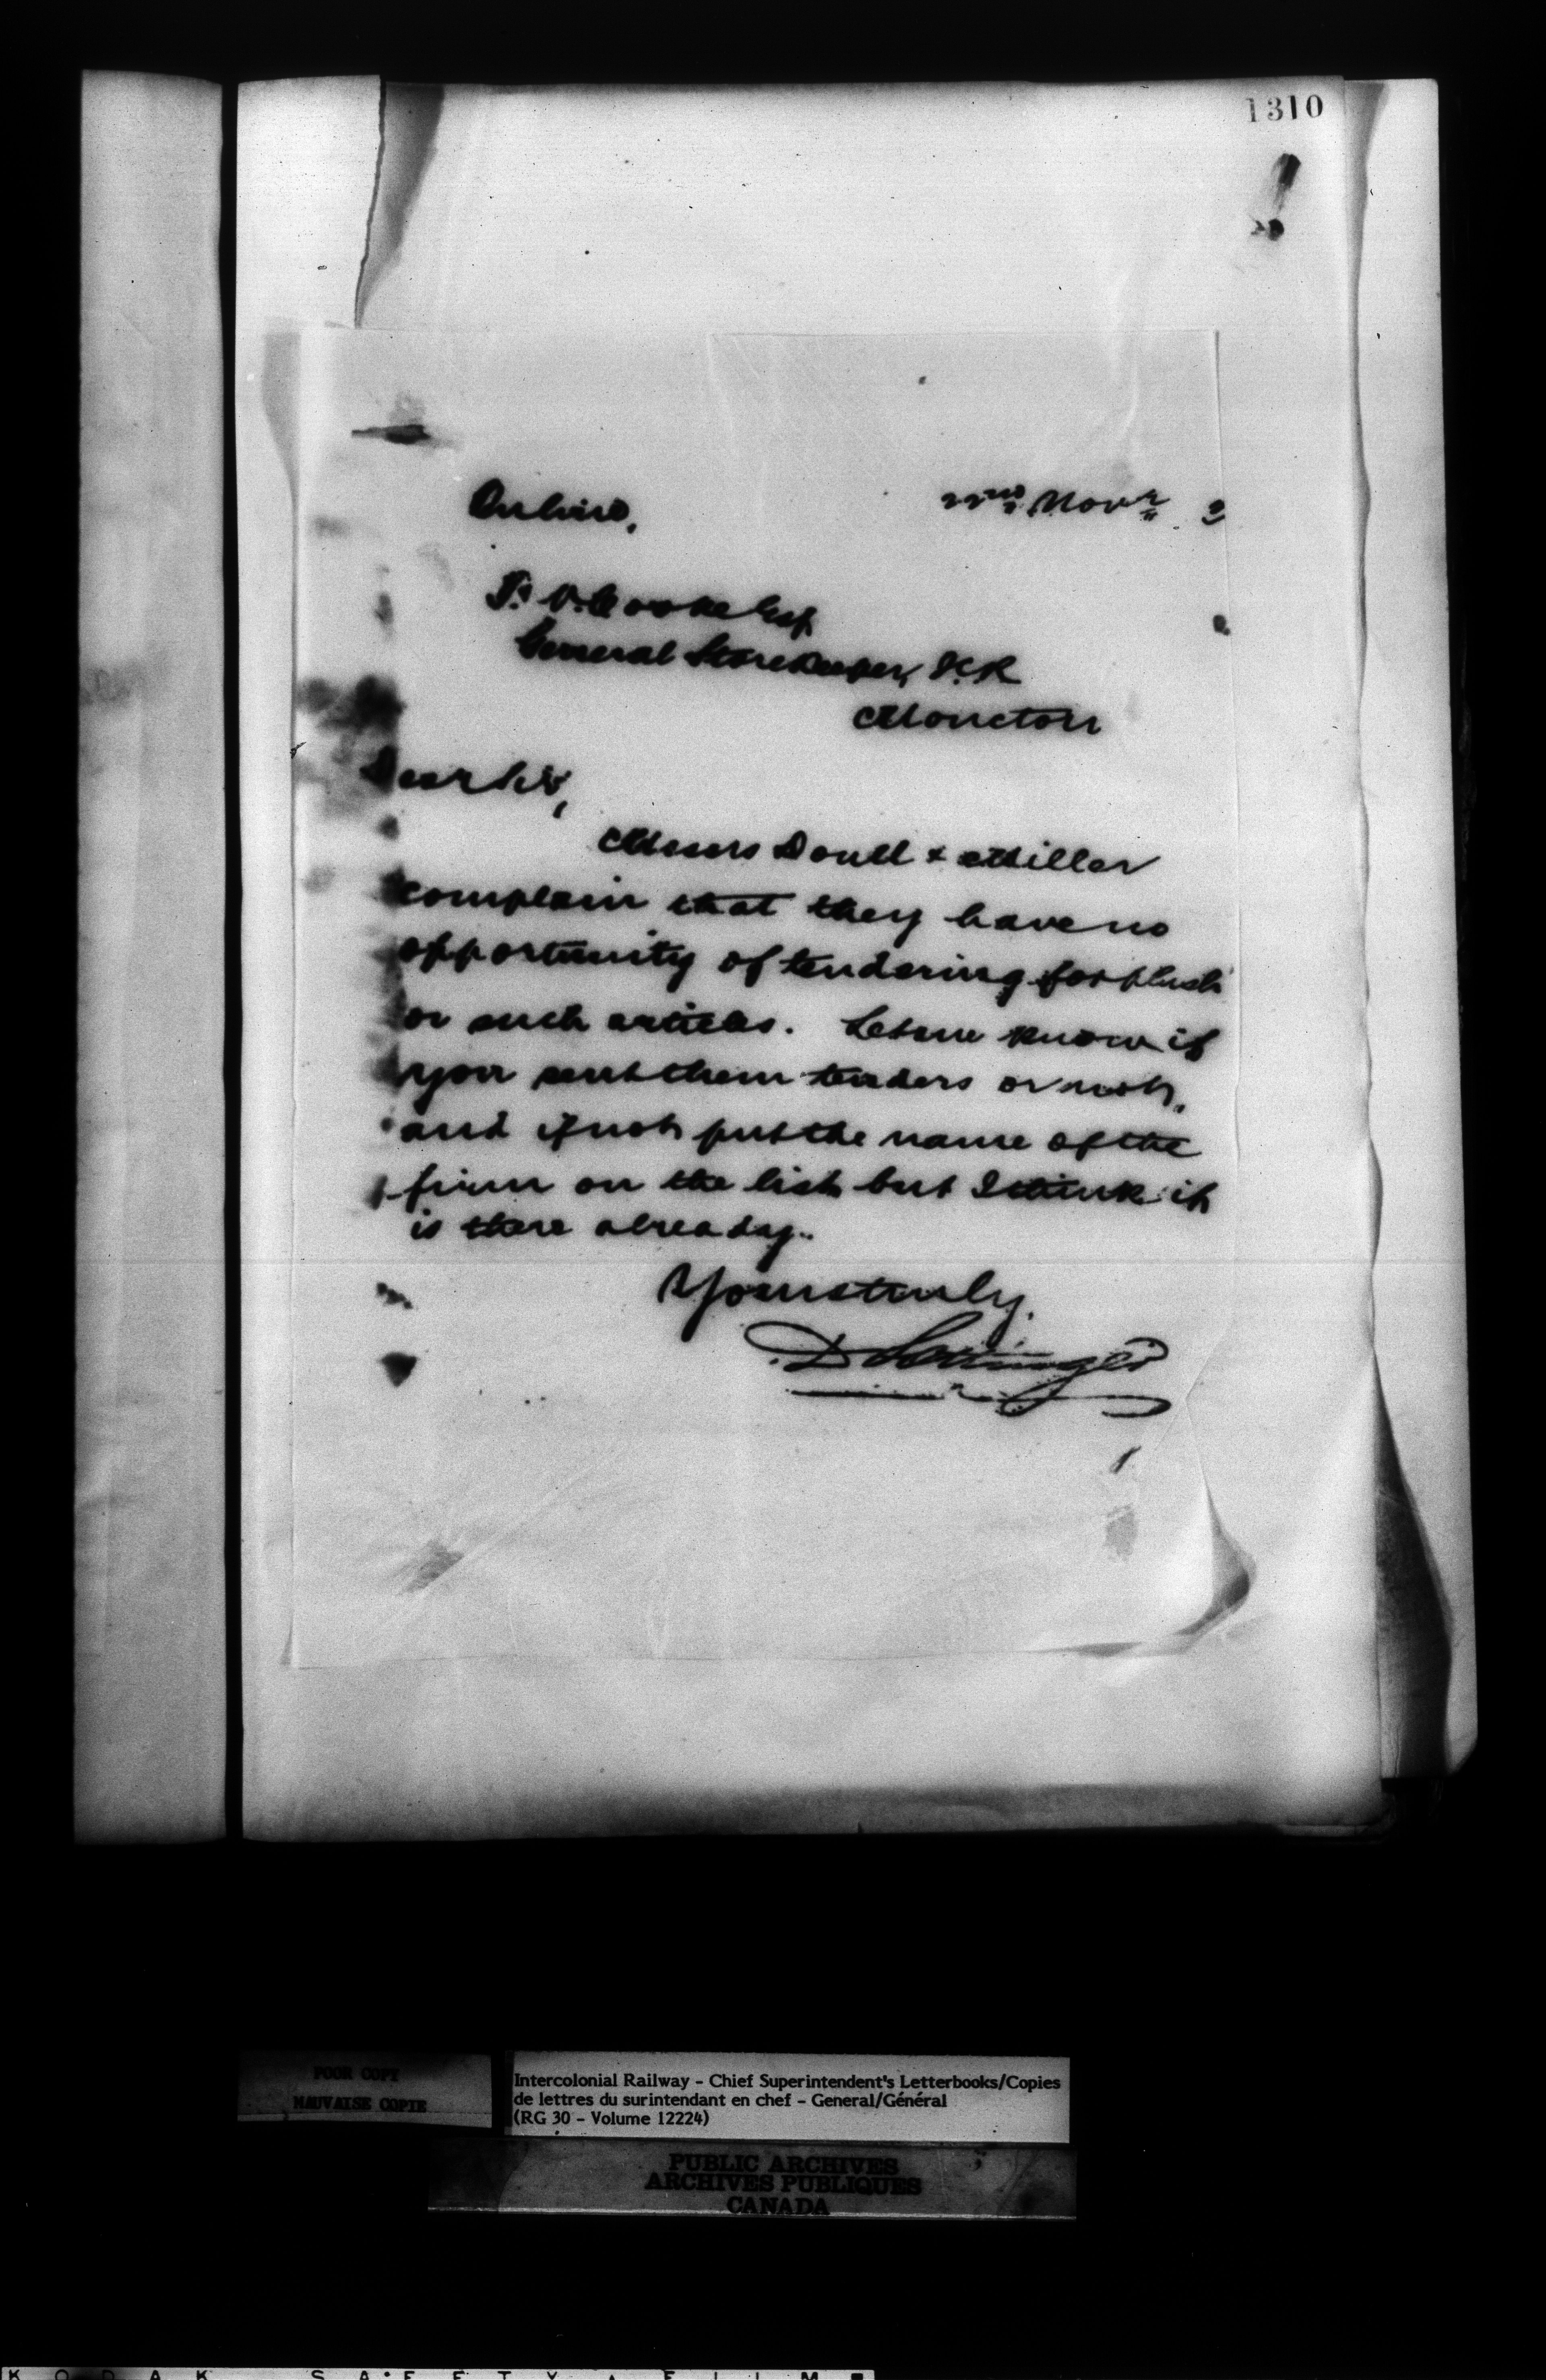 1310
22nd Novr 2
T. V. Cooke Esq
General Storekeeper, I.C.R
Moncton
Dear Sir,
Messrs Doull & Miller
complain that they have no
opportunity of tendering for plush
or such articles. Let me know if
you sent them tenders or not,
and if not put the name of the
firm on the list but I think it
is there already.
Yours truly,
D Pottinger
POOR COPY
MAUVAISE COPIE
Intercolonial Railway - Chief Superintendent's Letterbooks/Copies
de lettres du surintendant en chef - General/Général
(RG 30 - Volume 12224)
PUBLIC ARCHIVES
ARCHIVES PUBLIQUES
CANADA
KODAK SAFETY FILM